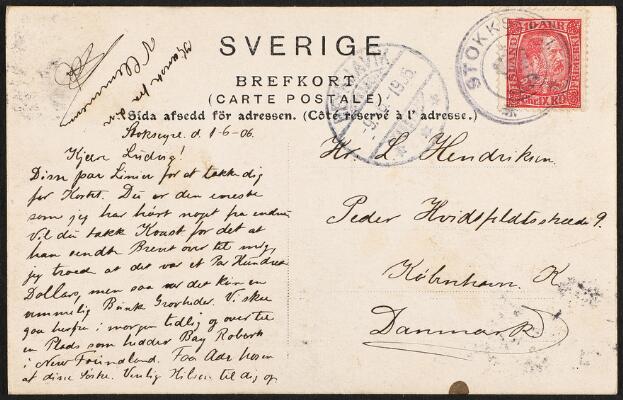 SVERIGE
BREFKORT
(CARTE POSTALE)
Sida afsedd för adressen. (Côté réservé à l' adresse.)
STOKKS
ISLAND 10 AUR
REYKJAVIK
Stokseyre. d. 1-6-06.
Kjære Ludvig!
Disse par Linier for at takke dig
for Kortet. Du er den eneste
som jeg har hørt noget fra endnu
Vil du takke Knust for det at
han sendte Brevet over til mig,
jeg troed at det var et Par Hundrede
Dollars, men saa var det kun en
Bunk Grovheder. Vi skal
gaa herfra i morgen tidlig og over til
en Plads som hedder Bay Roberts
i New Foundland. Faa Adr hosen
af dine Søstre. Venlig Hilsen til dig og
Hr. L. Hendriksen.
Peder Hvidtfeldtsstræde 9.
København K
Danmark